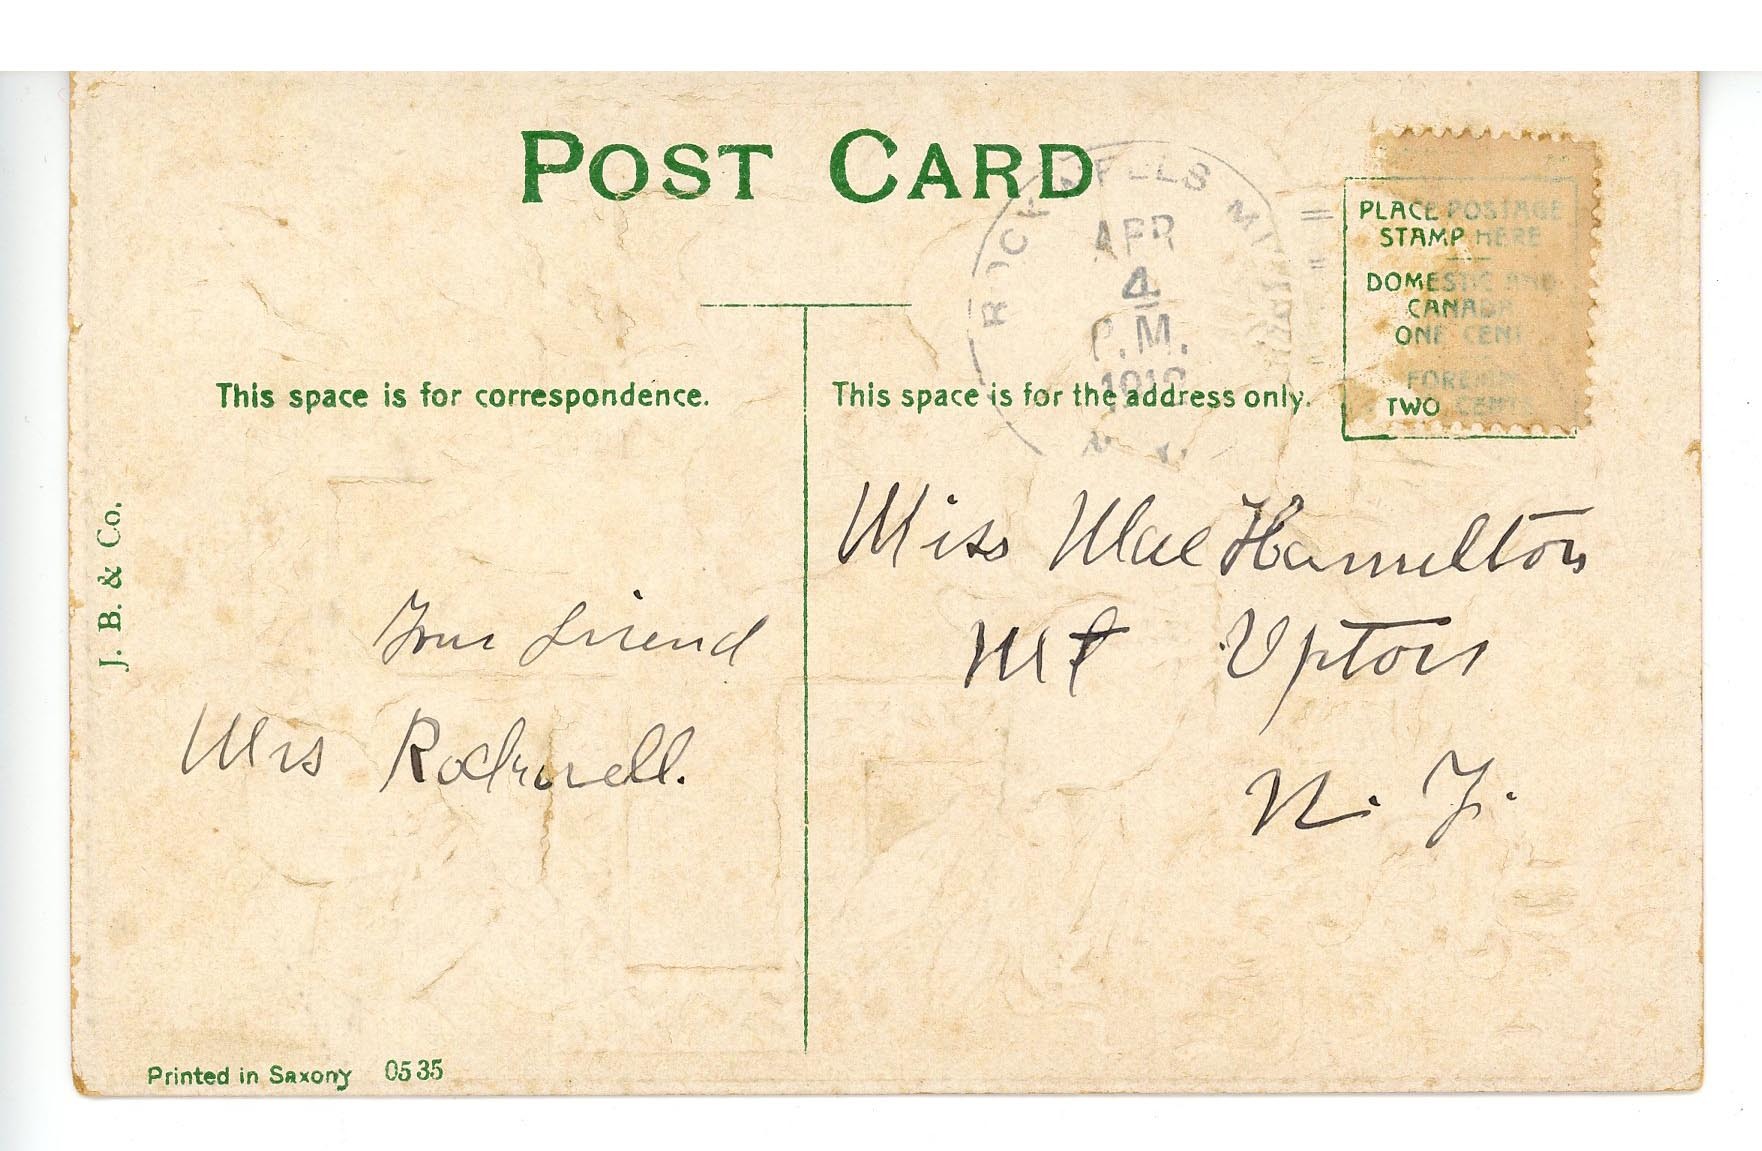 POST CARD
APR
4
P.M.
PLACE POSTAGE
STAMP HERE
DOMESTIC AND
CANADA
ONE CENT
FOREIGN
TWO CENTS
This space is for correspondence.
This space is for the address only.
J. B. & Co.
Your friend
Mrs Rockwell.
Miss Mae Hamilton
Mt Upton
N. Y.
Printed in Saxony 0535